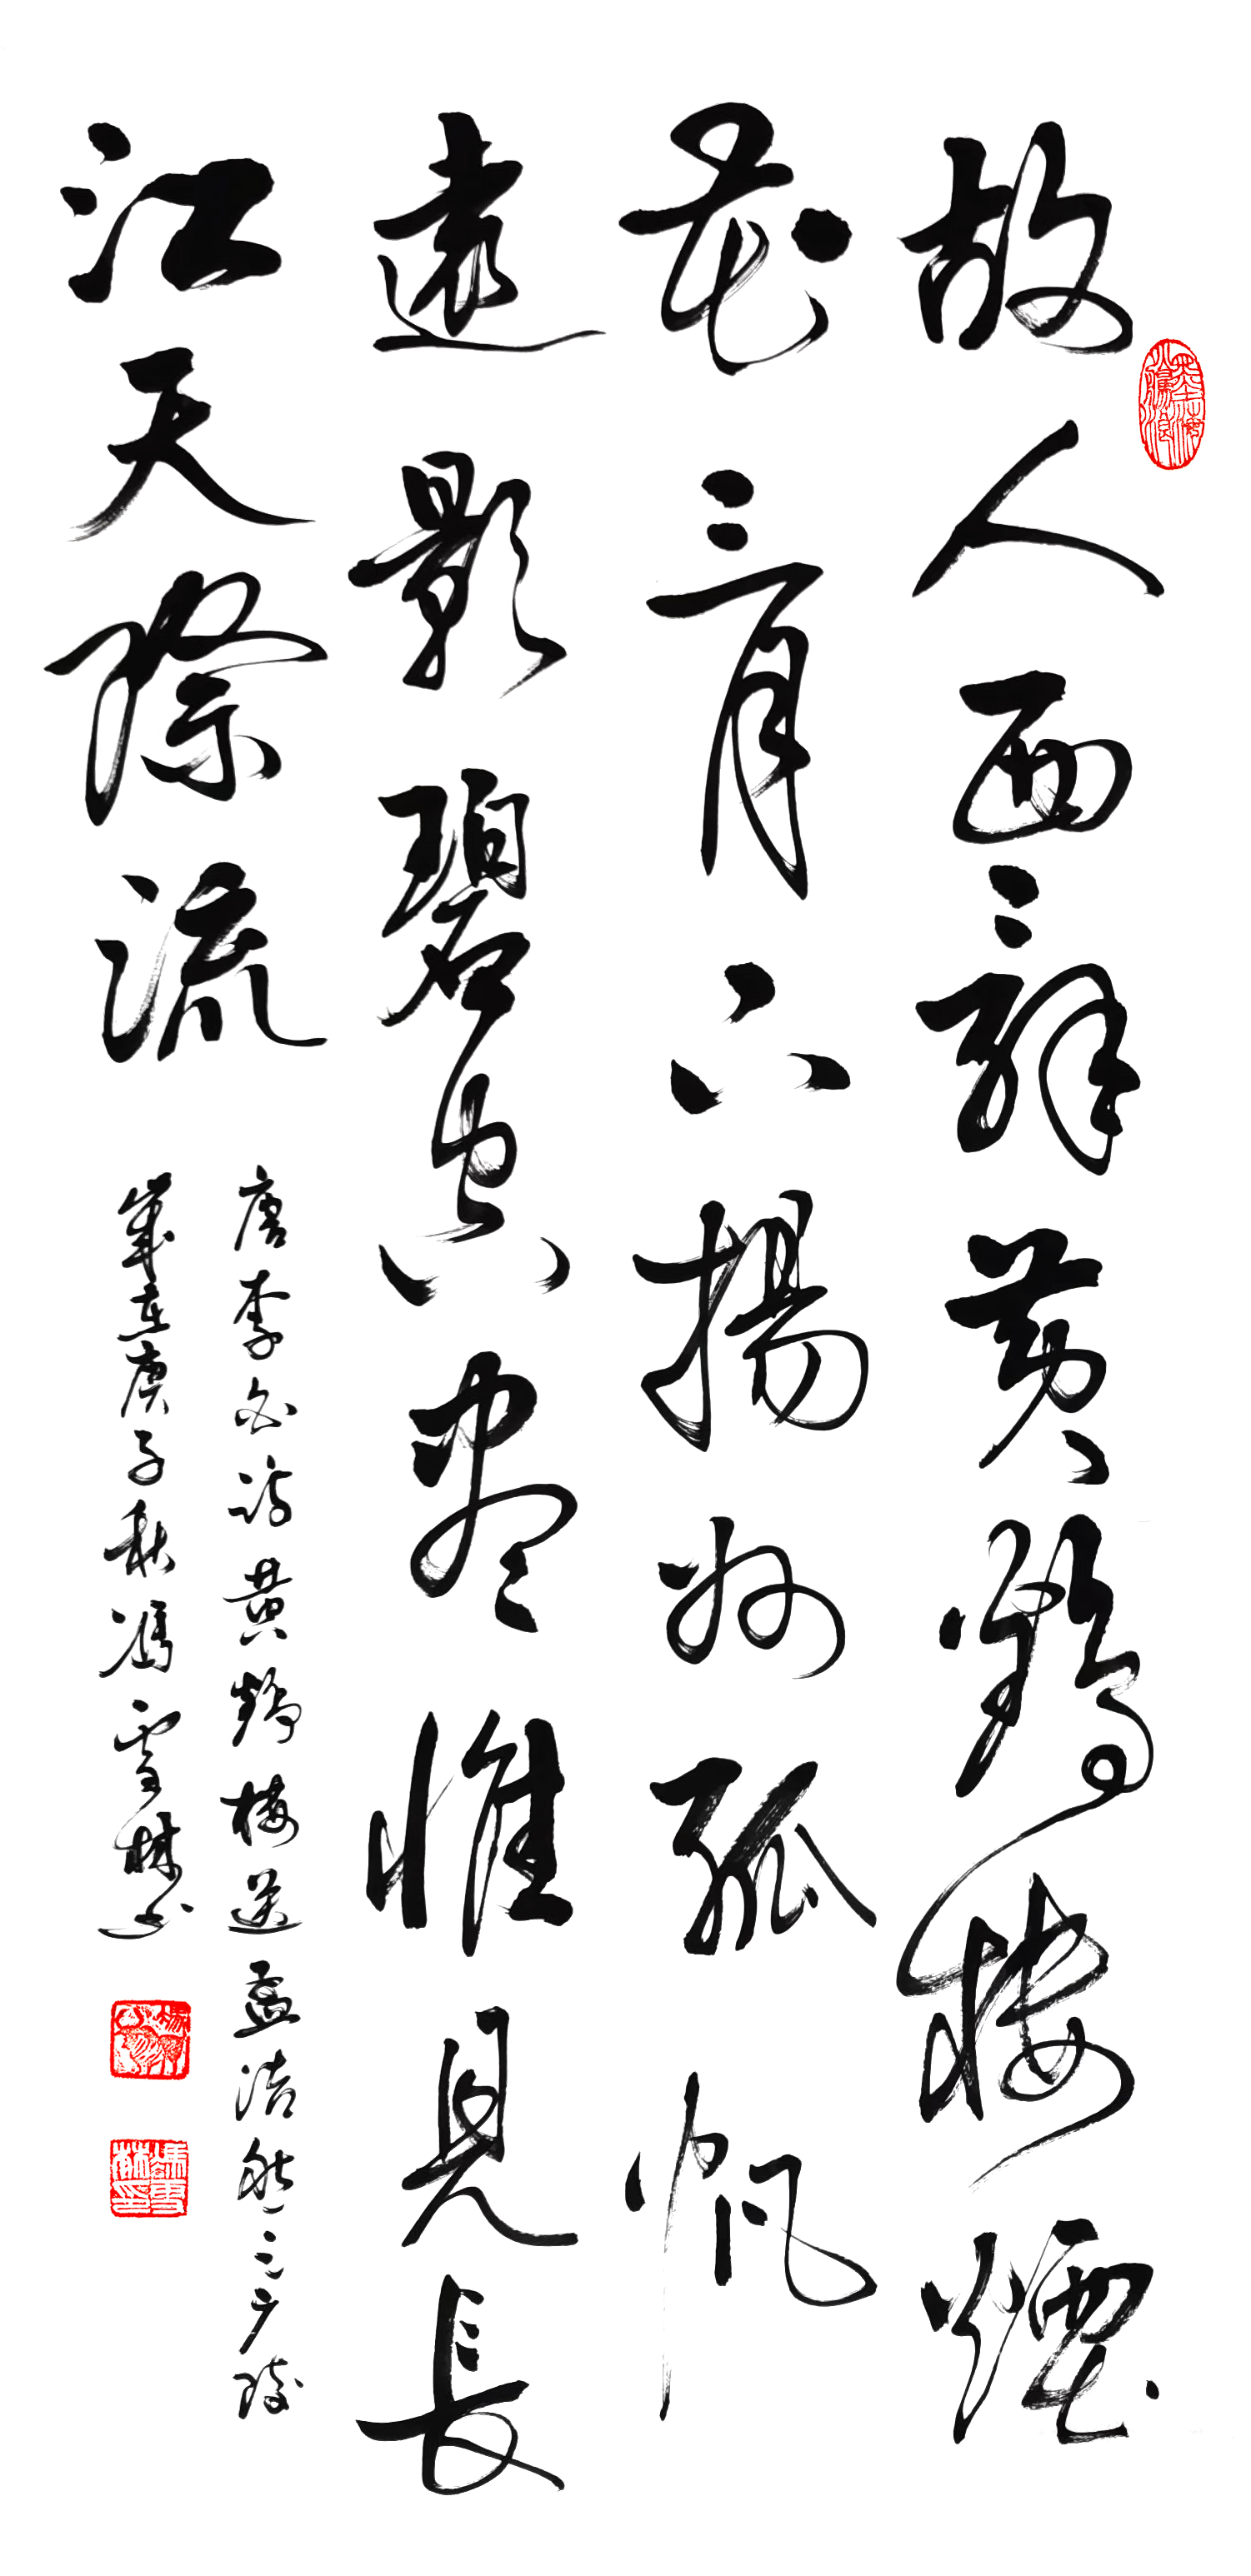 故人西辭黃鶴樓煙
花三月下揚州孤帆
遠影碧空盡惟見長
江天際流
唐李白詩黃鶴樓送孟浩然之廣陵
歲在庚子秋馮雪林书
馮雪林印